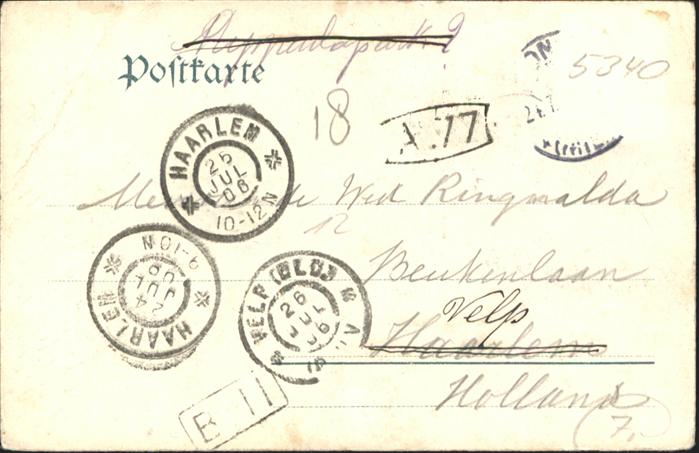 Postkarte
5340
18
A 77
HAARLEM
25
JUL
06
10-12N
Wed Ringnalda
12
Beukenlaan
Velp
Haarlem
Holland
7.
HAARLEM
24
JUL
06
9-10N
VELP (GLD)
26
JUL
06
B 11